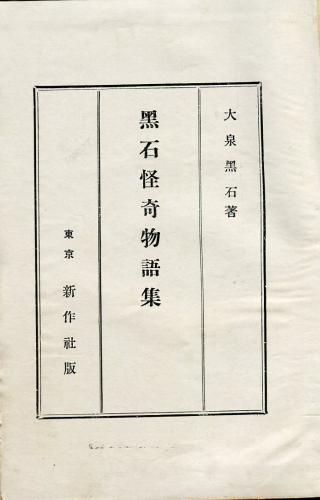 大泉黑石著
黑石怪奇物語集
東京 新作社版